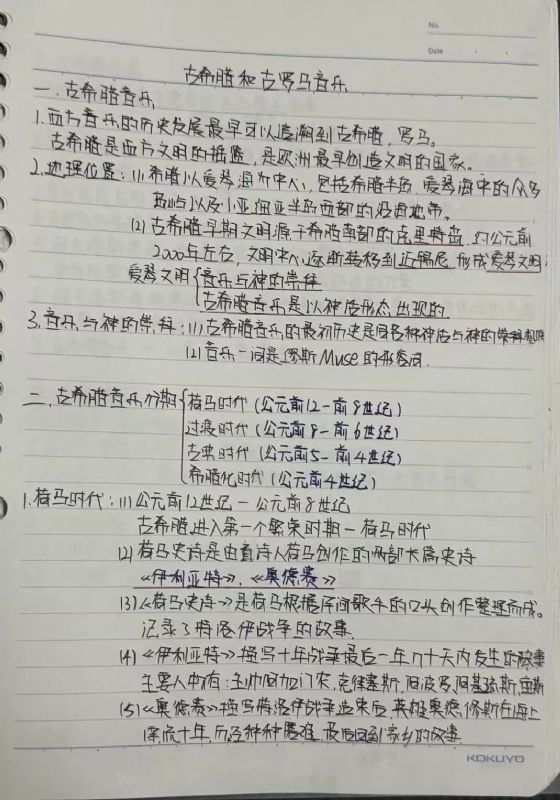 No.
Date
古希腊和古罗马音乐
一.古希腊音乐
1.西方音乐的历史发展最早可以追溯到古希腊,罗马。
古希腊是西方文明的摇篮,是欧洲最早创造文明的国家。
2.地理位置:(1)希腊以爱琴海为中心,包括希腊半岛,爱琴海中的众多
岛屿以及小亚细亚半岛西部的沿海地带。
(2)古希腊早期文明源于希腊南部的克里特岛,约公元前
2000年左右,文明中心逐渐转移到迈锡尼,形成爱琴文明
爱琴文明{音乐与神的崇拜
古希腊音乐是以神话形态出现的
3.音乐与神的崇拜:(1)古希腊音乐的最初历史是同各种神话与神的崇拜
(2)音乐一词是缪斯Muse的形容词.
二.古希腊音乐分期{荷马时代(公元前12-前8世纪)
过渡时代(公元前8-前6世纪)
古典时代(公元前5-前4世纪)
希腊化时代(公元前4世纪)
1.荷马时代:(1)公元前12世纪-公元前8世纪
古希腊进入第一个繁荣时期-荷马时代
(2)荷马史诗是由盲诗人荷马创作的两部长篇史诗
《伊利亚特》,《奥德赛》
(3)《荷马史诗》是荷马根据民间歌手的口头创作整理而成。
记录了特洛伊战争的故事.
(4)《伊利亚特》描写十年战争最后一年几十天内发生的故事
主要人物有:主帅阿加门农,克律塞斯,阿波罗,阿基琉斯,宙斯
(5)《奥德赛》描写特洛伊战争结束后,英雄奥德修斯在海上
漂流十年,历经种种磨难,最后回到家乡的故事
KOKUYO